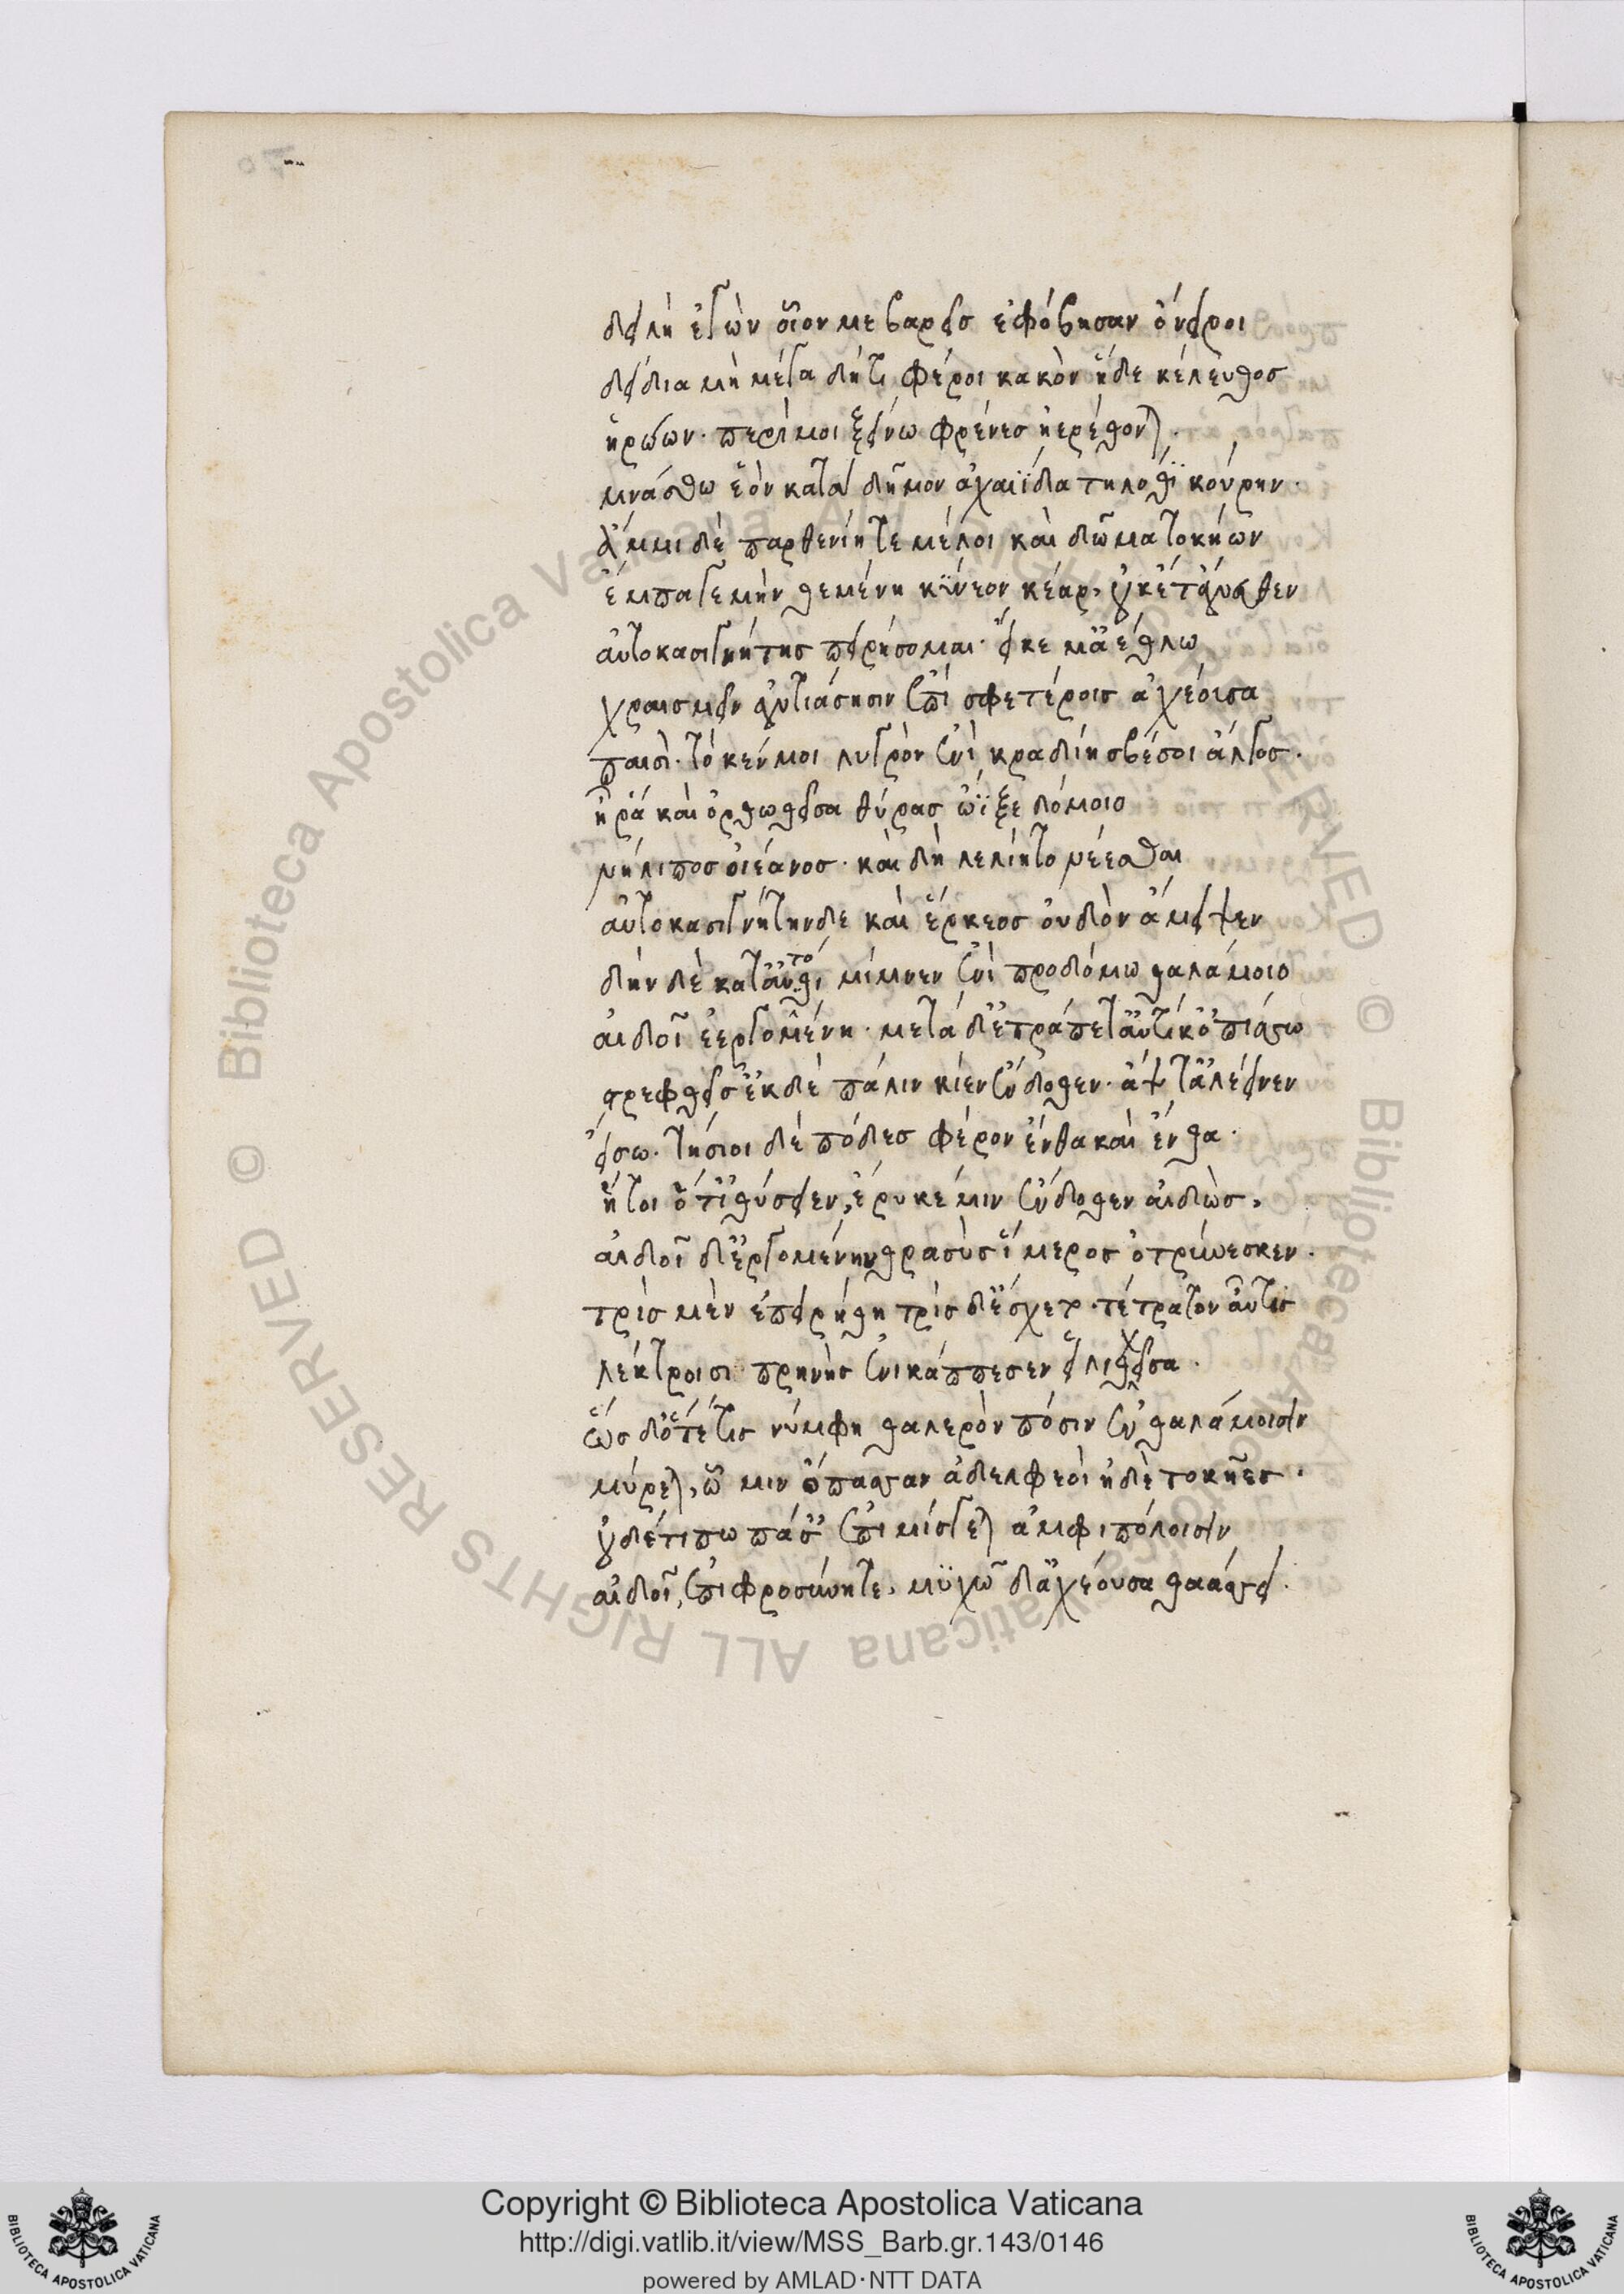 δειλὴ ἐγὼν οἷόν με βαρεῖς ἐφόβησαν ὄνειροι
δείδια μὴ μέγα δή τι φέροι κακὸν ἥδε κέλευθος
ἡρώων· περί μοι ξείνω φρένες ἠερέθονται·
μνάσθω ἑὸν κατὰ δῆμον ἀχαιΐδα τηλόθι κούρην·
ἄμμι δὲ παρθενίη τε μέλοι καὶ δῶμα τοκήων
ἔμπα γε μὴν θεμένη κύνεον κέαρ, οὐκέτ' ἄνευθεν
αὐτοκασιγνήτης πειρήσομαι· εἴ κε μ' ἀέθλω
χραισμεῖν ἀντιάσησιν ἐπὶ σφετέροις ἀχέουσα
παισί· τό κέν μοι λυγρὸν ἐνὶ κραδίη σβέσοι ἄλγος·
ἦ ῥά καὶ ὀρθωθεῖσα θύρας ὤϊξε δόμοιο
νήλιπος οἰέανος· καὶ δὴ λελίητο νέεσθαι
αὐτοκασιγνήτηνδε καὶ ἕρκεος οὐδὸν ἄμειψεν
δὴν δὲ κατ' αὐτόθι μίμνεν ἐνὶ προδόμω θαλάμοιο
αἰδοῖ ἐεργομένη· μετὰ δ' ἐτράπετ' αὖτις ὀπίσσω
στρεφθεῖσ' ἐκ δὲ πάλιν κίεν ἔνδοθεν· ἄψ τ' ἀλέεινεν
εἴσω· τηΰσιοι δὲ πόδες φέρον ἔνθα καὶ ἔνθα·
ἤτοι ὅτ' ἰθύσειεν, ἔρυκέ μιν ἔνδοθεν αἰδὼς,
αἰδοῖ δ' ἐργομένην θρασὺς ἵμερος ὀτρύνεσκεν·
τρὶς μὲν ἐπειρήθη τρὶς δ' ἔσχετο· τέτρατον αὖτις
λέκτροισι πρηνὴς ἐνικάππεσεν εἱλιχθεῖσα·
ὡς δ' ὅτε τις νύμφη θαλερὸν πόσιν ἐν θαλάμοισιν
μύρεται, ᾧ μιν ὄπασσαν ἀδελφεοὶ ἠδὲ τοκῆες·
οὐδέ τί πω πάσαις ἐπιμίσγεται ἀμφιπόλοισιν
αἰδοῖ, ἐπιφροσύνη τε, μυχῶ δ' ἀχέουσα θαάσσει·
Copyright © Biblioteca Apostolica Vaticana
http://digi.vatlib.it/view/MSS_Barb.gr.143/0146
powered by AMLAD·NTT DATA